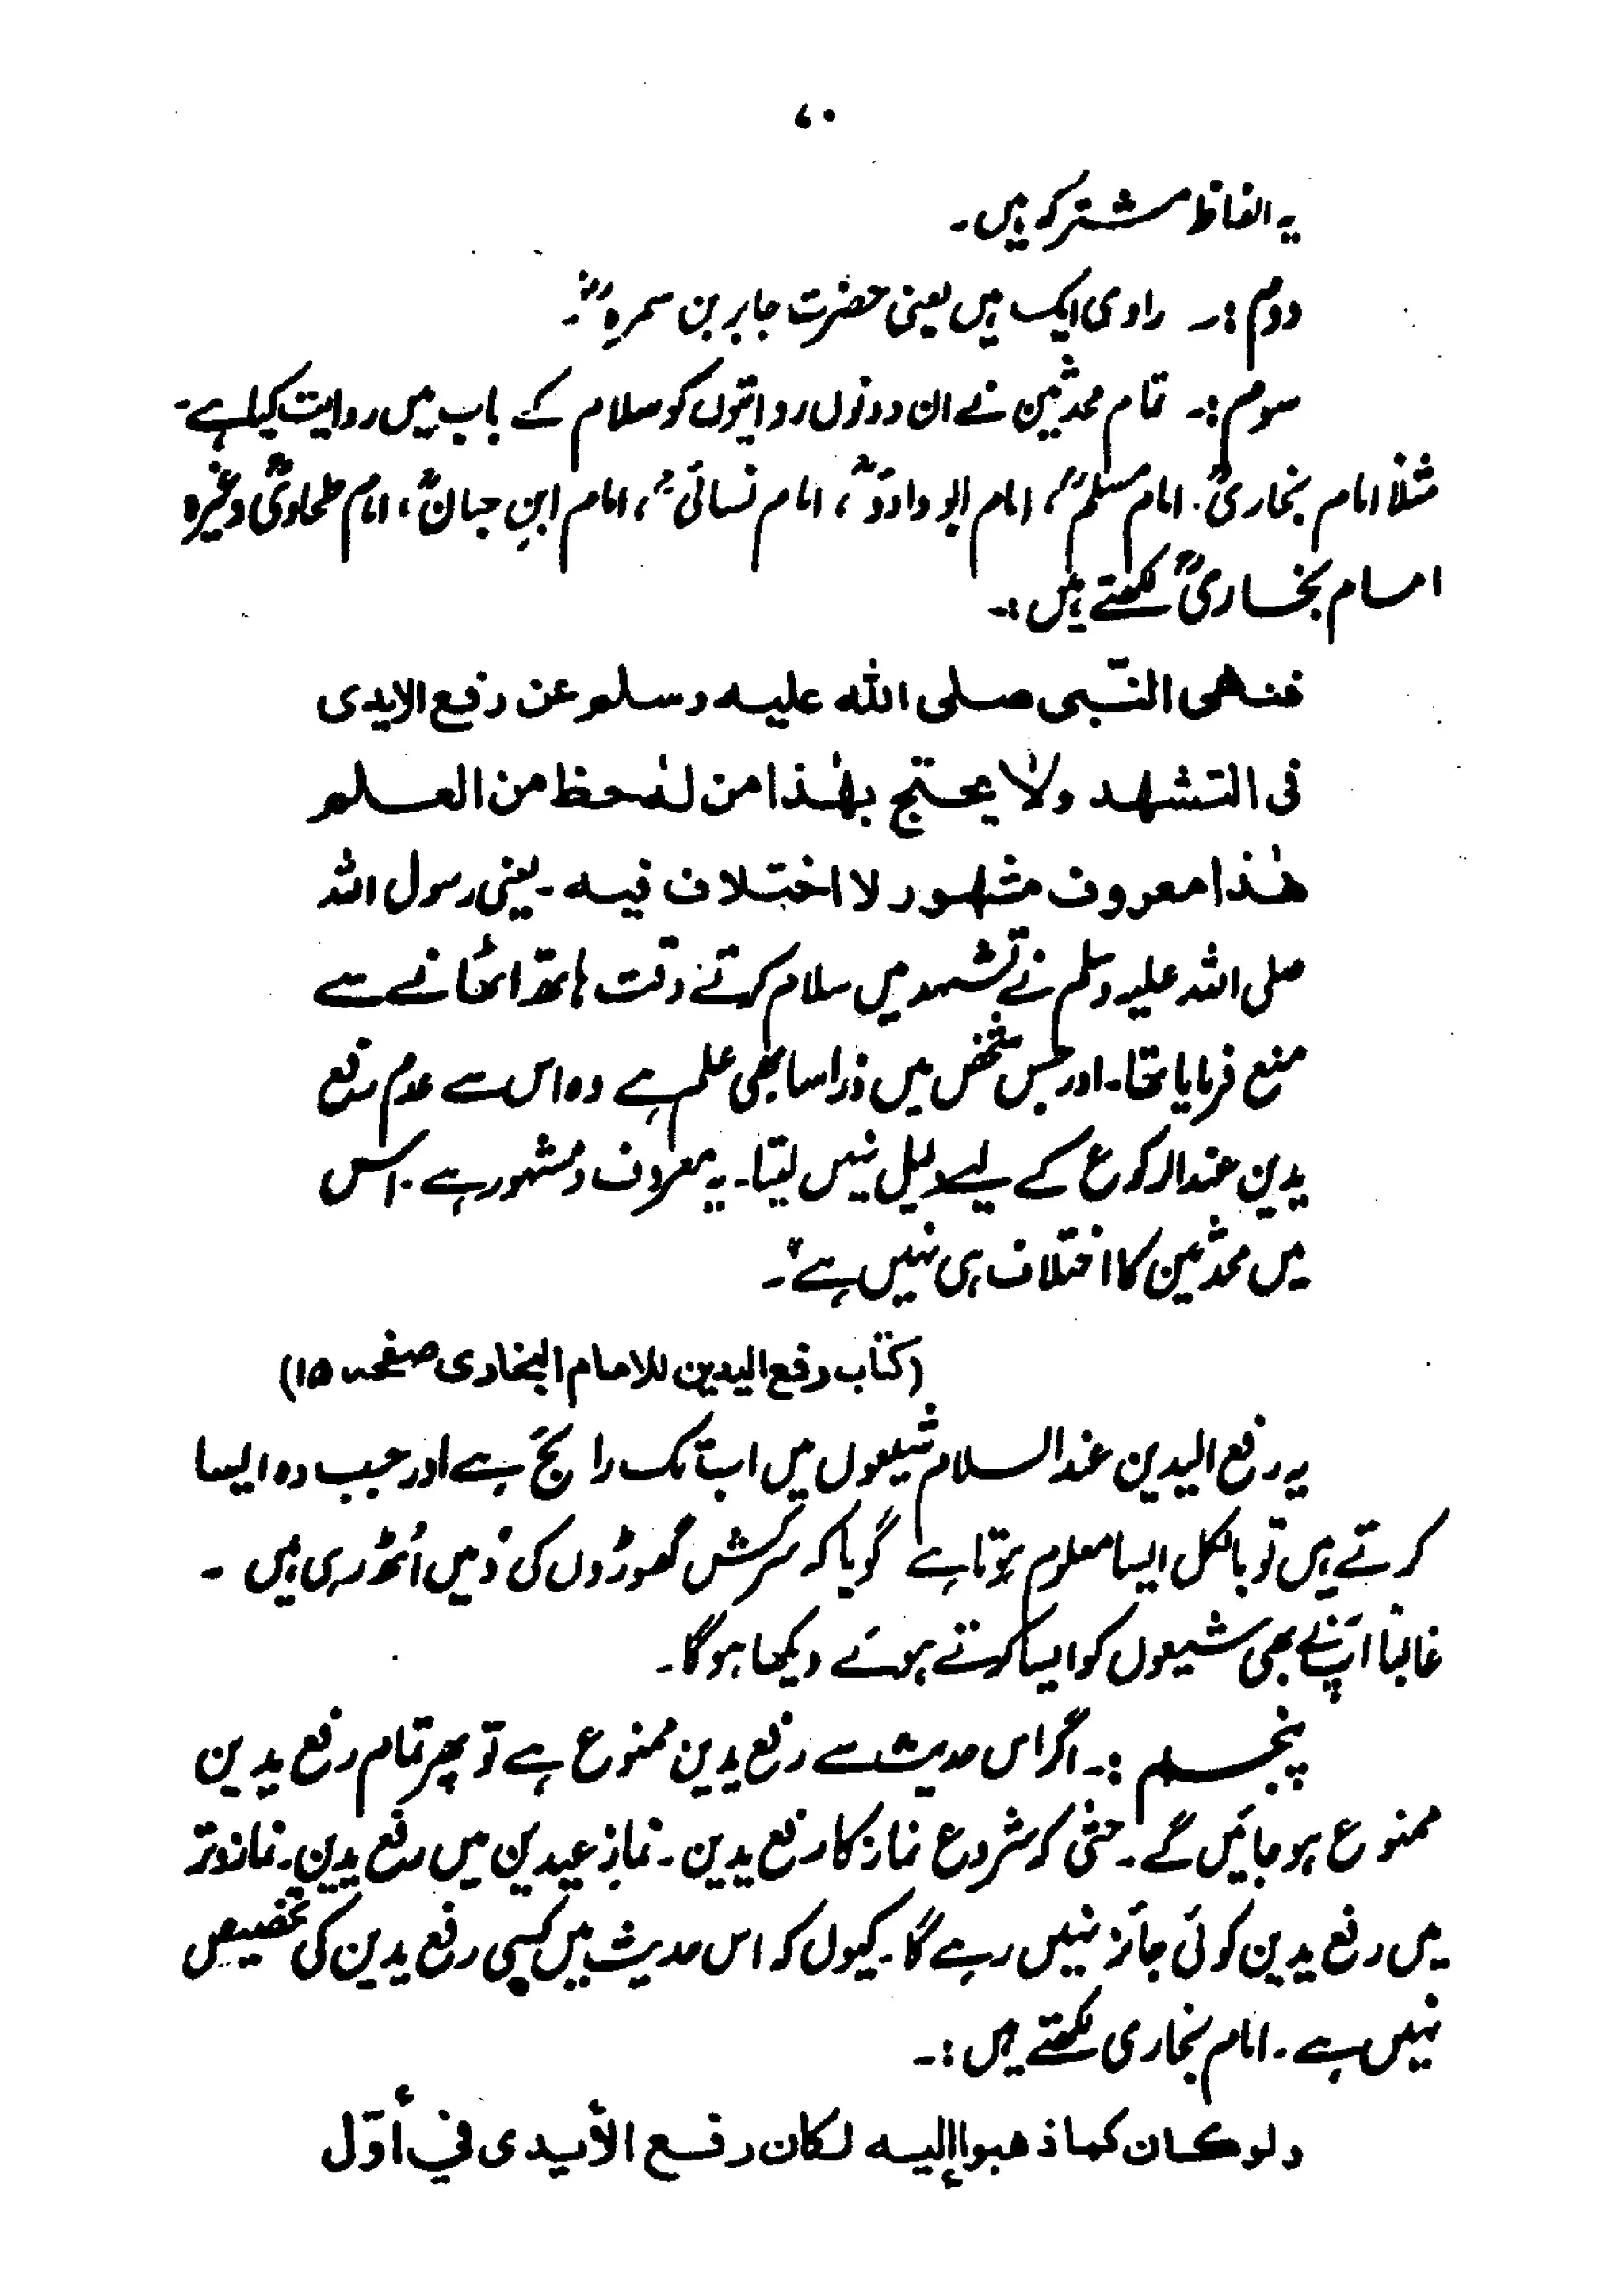 ۷۰
یہ الفاظ مشترکہ ہیں۔
دوم:۔ راوی ایک ہیں یعنی حضرت جابر بن سمرہؓ۔
سوم:۔ تمام محدثین نے ان دونوں روایتوں کو سلام کے باب میں روایت کیا ہے۔
مثلاً امام بخاریؒ، امام مسلمؒ، امام ابو داؤدؒ، امام نسائیؒ، امام ابنِ حبانؒ، امام طحاویؒ وغیرہ
امام بخاریؒ لکھتے ہیں:۔
فنهى النّبى صلى الله عليه وسلم عن رفع الايدى
فى التشهد ولا يحتج بهٰذا من لهٗ حظ من العلم
هٰذا معروف مشهور لا اختلاف فيه۔ یعنی رسول اللہ
صلی اللہ علیہ وسلم نے تشہد میں سلام کرتے وقت ہاتھ اٹھانے سے
منع فرمایا تھا۔ اور جس شخص میں ذرا سا بھی علم ہے وہ اس سے عدم رفع
یدین عندالرکوع کے لیے دلیل نہیں لیتا۔ یہ معروف و مشہور ہے۔ اس
میں محدثین کا اختلاف ہی نہیں ہے"۔
(کتاب رفع الیدین للامام البخاری صفحہ ۱۵)
یہ رفع الیدین عند السلام شیعوں میں اب تک رائج ہے اور جب وہ ایسا
کرتے ہیں تو بالکل ایسا معلوم ہوتا ہے گویا کہ سرکش گھوڑوں کی دُمیں اُٹھ رہی ہیں۔
غالباً آپ نے بھی شیعوں کو ایسا کرتے ہوئے دیکھا ہو گا۔
پنجم:۔ اگر اس حدیث سے رفع یدین ممنوع ہے تو پھر تمام رفع یدین
ممنوع ہو جائیں گے۔ حتیٰ کہ شروع نماز کا رفع یدین۔ نمازِ عیدین میں رفع یدین۔ نماز وتر
میں رفع یدین کوئی جائز نہیں رہے گا۔ کیوں کہ اس حدیث میں کسی رفع یدین کی تخصیص
نہیں ہے۔ امام بخاری لکھتے ہیں:۔
ولو كان كما ذهبوا إليه لكان رفع الأيدى في أوّل